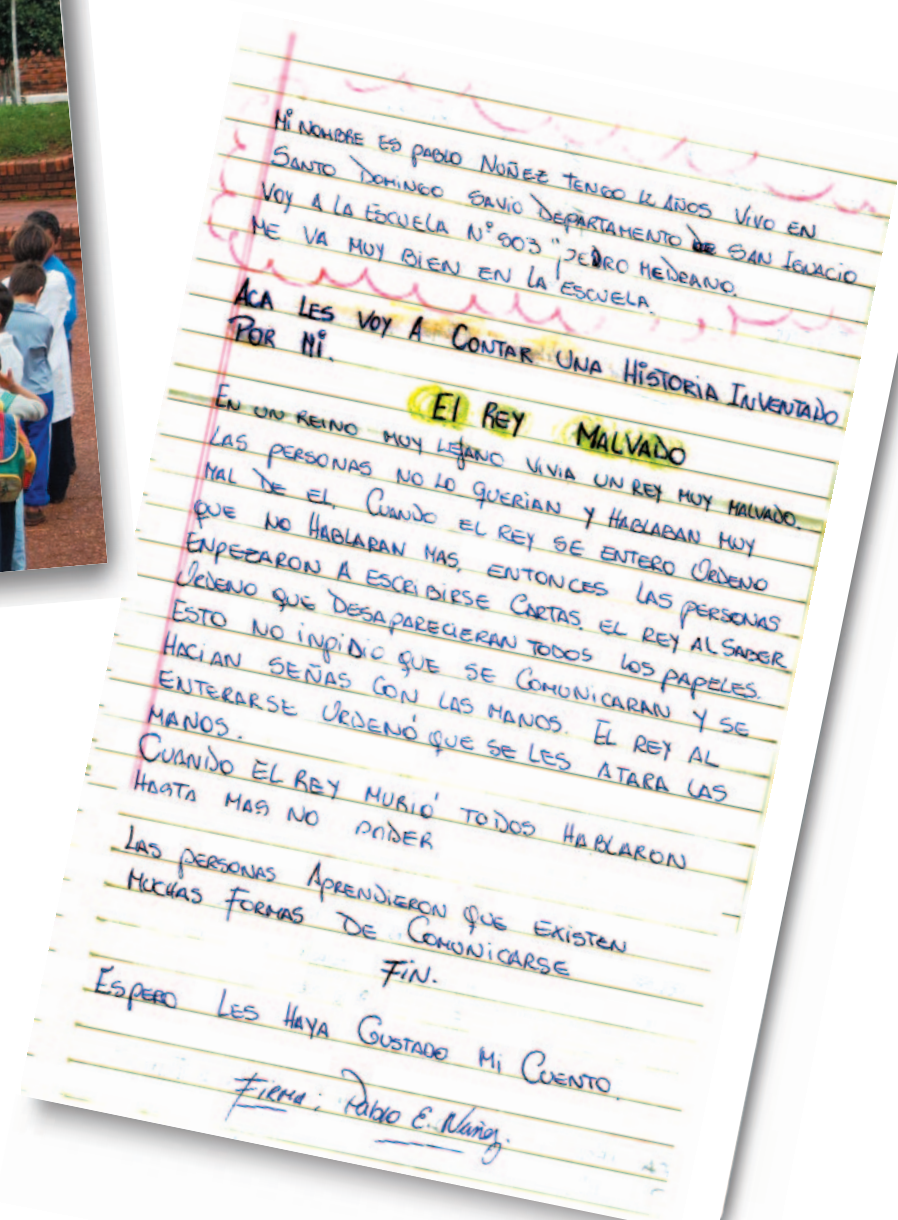 Mi NOMBRE ES PABLO NUÑEZ TENGO 12 AÑOS VIVO EN
SANTO DOMINGO SAVIO DEPARTAMENTO DE SAN IGNACIO
VOY A LA ESCUELA N° 903 "PEDRO MEDRANO.
ME VA MUY BIEN EN LA ESCUELA.
ACA LES VOY A CONTAR UNA HISTORIA INVENTADO
POR Mi.
El REY MALVADO
EN UN REINO MUY LEJANO VIVIA UN REY MUY MALVADO.
LAS PERSONAS NO LO QUERIAN Y HABLABAN MUY
MAL DE EL. CUANDO EL REY SE ENTERO ORDENO
QUE NO HABLARAN MAS, ENTONCES LAS PERSONAS
ENPEZARON A ESCRIBIRSE CARTAS. EL REY AL SABER
ORDENO QUE DESAPARECIERAN TODOS LOS PAPELES.
ESTO NO INPIDIO QUE SE COMUNICARAN Y SE
HACIAN SEÑAS CON LAS MANOS. EL REY AL
ENTERARSE ORDENÓ QUE SE LES ATARA LAS
MANOS.
CUANDO EL REY MURIÓ TODOS HABLARON
HASTA MAS NO PODER
LAS PERSONAS APRENDIERON QUE EXISTEN
MUCHAS FORMAS DE COMUNICARSE
FIN.
ESPERO LES HAYA GUSTADO Mi CUENTO.
FIRMA: Pablo E. Nuñez.